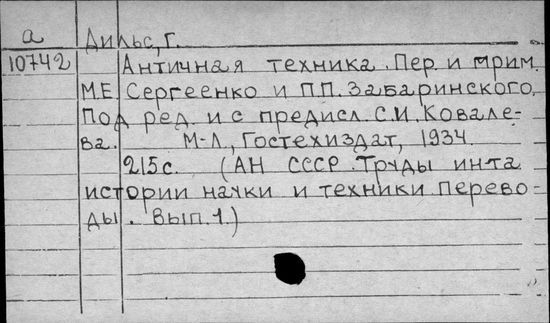 а Дильс, Г.
10742 Античная техника. Пер. и прим.
М.Е. Сергеенко и П.П. Забаринского.
Под ред. и с предисл. С.И. Ковале-
ва. М-Л., Гостехиздат, 1934.
215 с. (АН СССР. Труды ин-та
истории науки и техники. Перево-
ды. Вып. 1.)